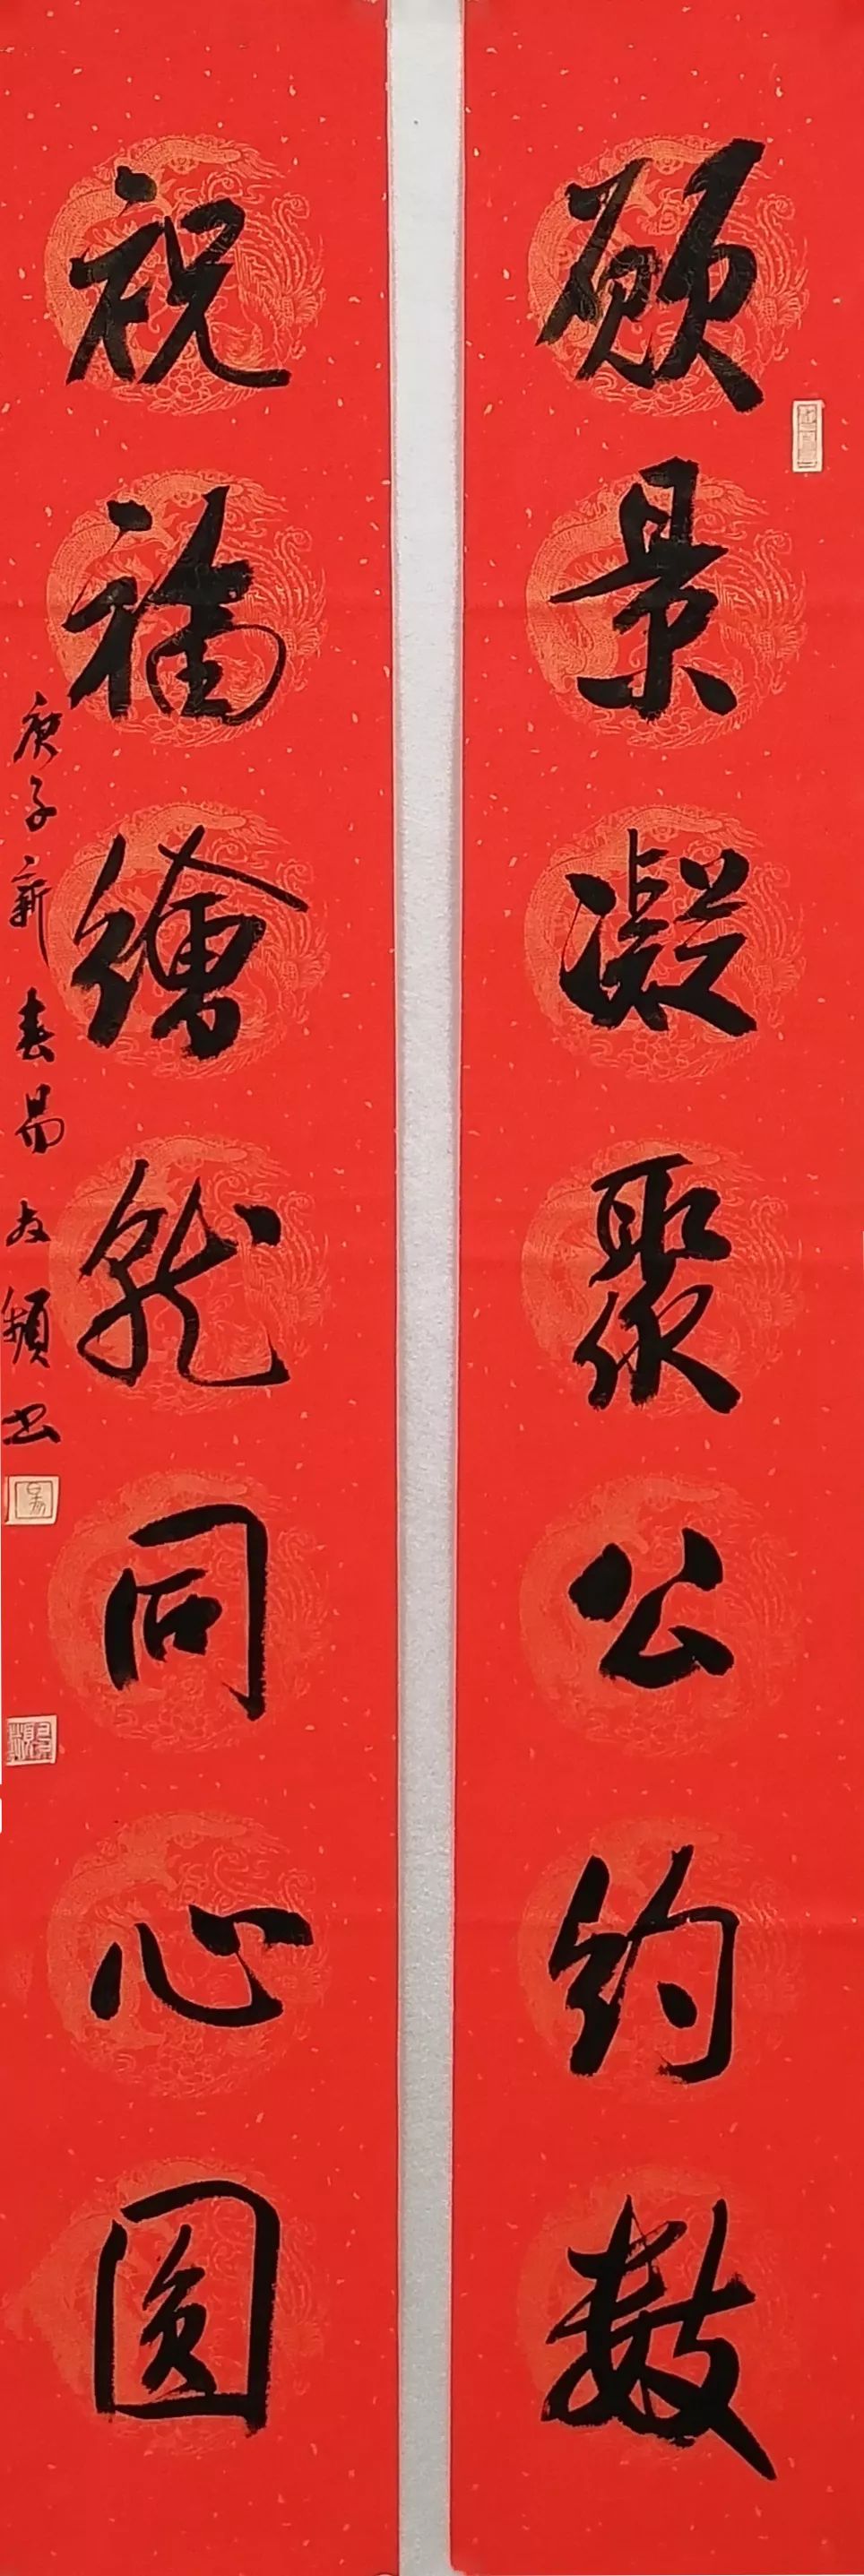 願景凝聚公约數
祝福繪就同心圆
庚子新春易友頻书